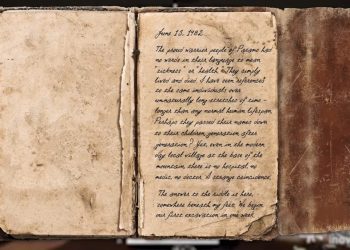 June 13, 1982
The proud warrior people of Paramo had
no words in their language to mean
"sickness" or "health." They simply
lived and died. I have seen references
to the same individuals over
unnaturally long stretches of time -
longer than any normal human lifespan.
Perhaps they passed their names down
to their children, generation after
generation? Yet, even in the modern
day local village at the base of the
mountain, there is no hospital, no
medic, no doctor. A strange coincidence.
The answer to the riddle is here,
somewhere beneath my feet. We begin
our first excavation in one week.